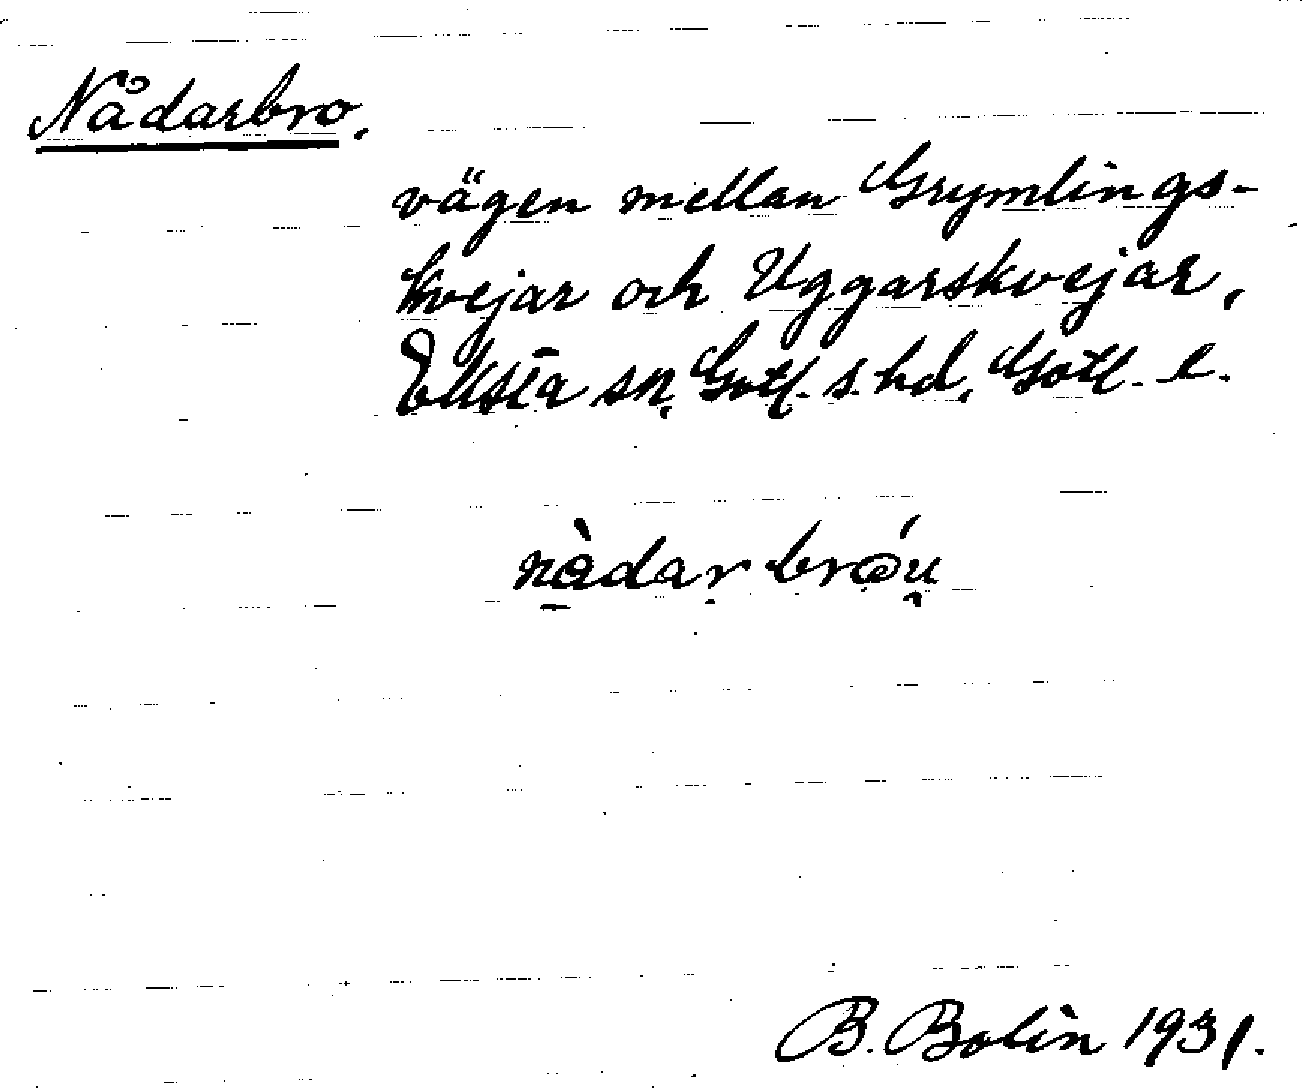 Nådarbro.
vägen mellan Grymlings-
kvejar och Uggarskvejar,
Eksta sn, Gotl. s. hd, Gotl. l.
nàdar bróu
B. Bolin 1931.